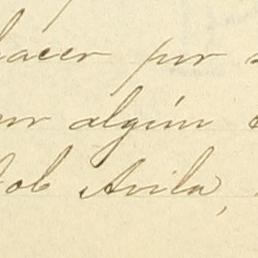 hacer por
por algún
Job Avila,